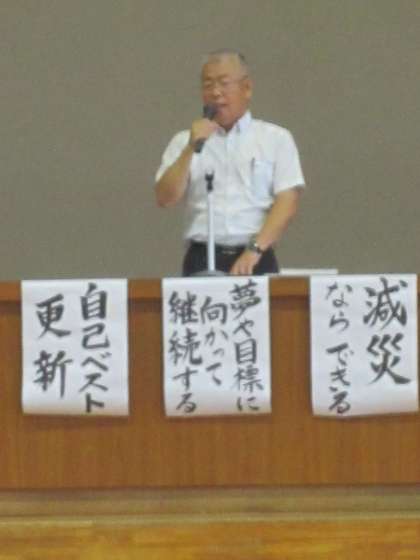 減災
ならできる
夢や目標に
向かって
継続する
自己ベスト
更新